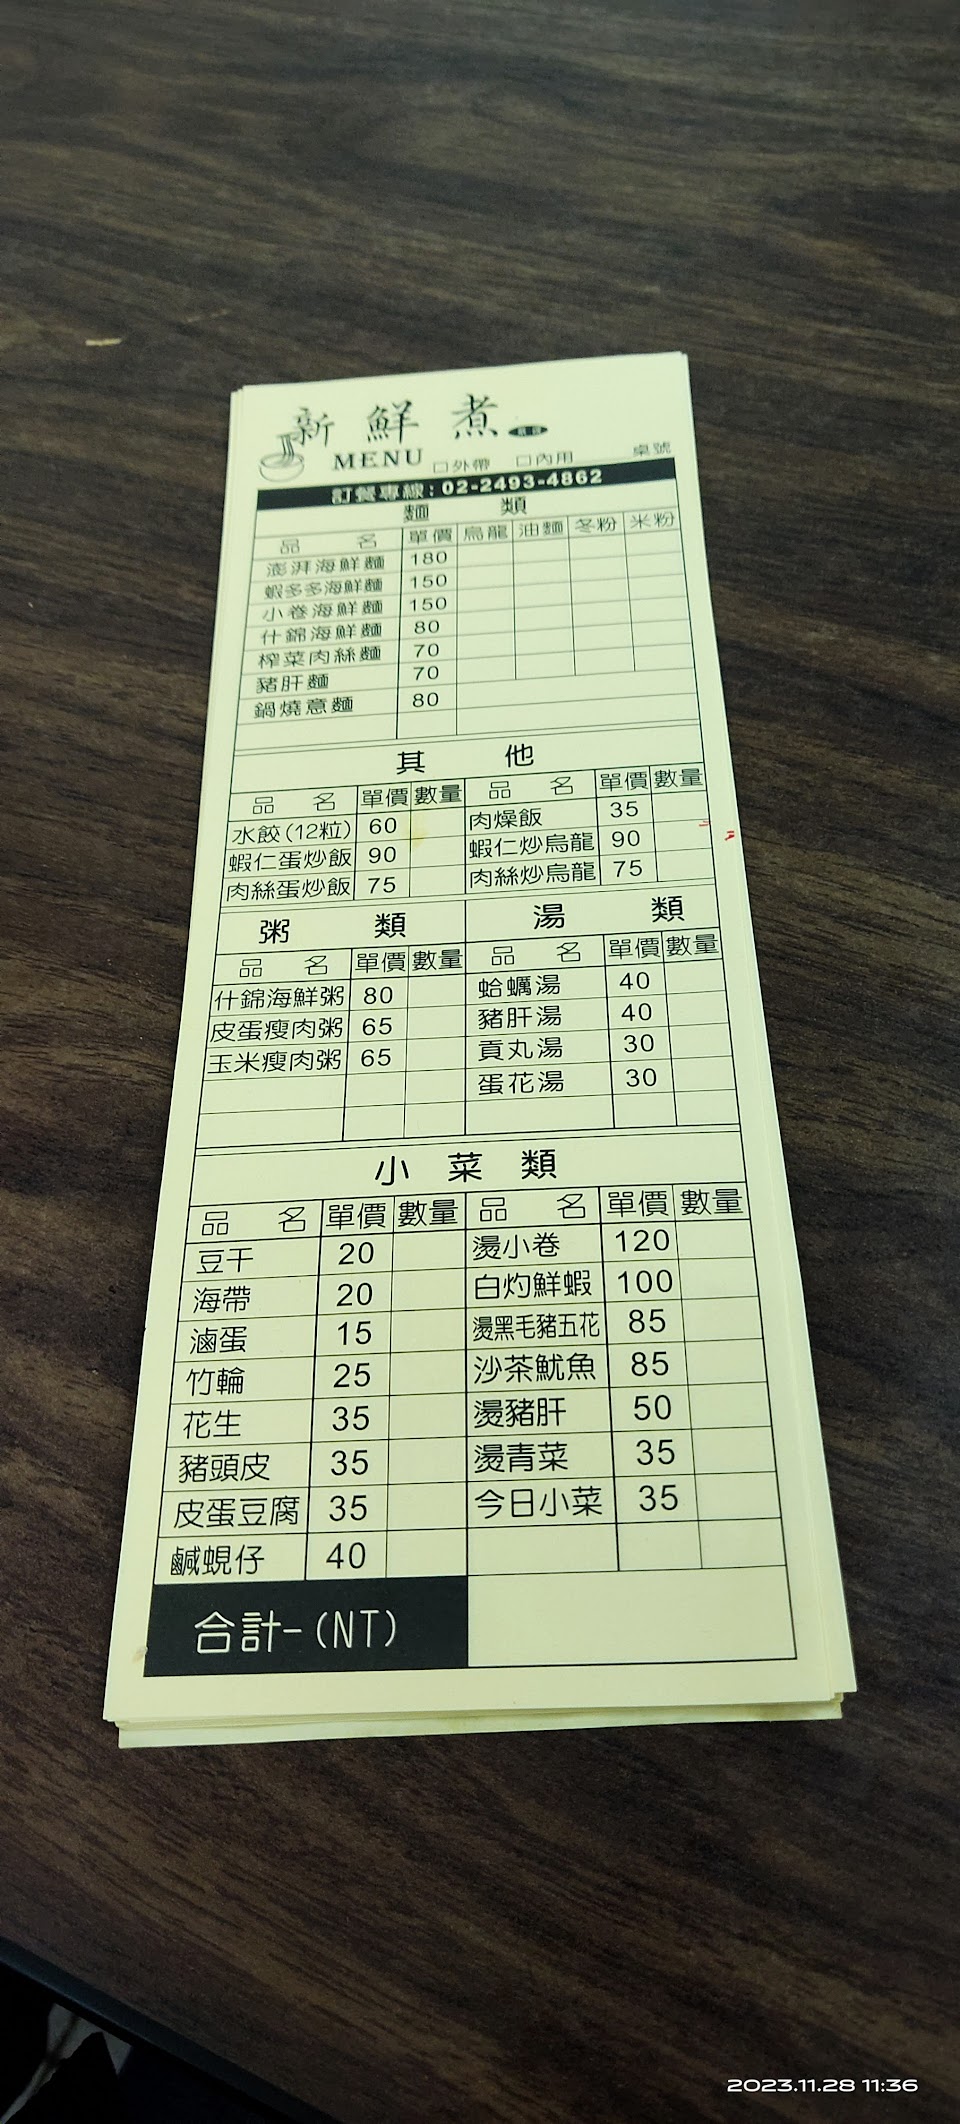 新鮮煮
MENU □外帶 □內用 桌號
訂餐專線：02-2493-4862
麵類
品名 單價 烏龍 油麵 冬粉 米粉
澎湃海鮮麵 180
蝦多多海鮮麵 150
小卷海鮮麵 150
什錦海鮮麵 80
榨菜肉絲麵 70
豬肝麵 70
鍋燒意麵 80
其他
品名 單價 數量 品名 單價 數量
水餃(12粒) 60 肉燥飯 35
蝦仁蛋炒飯 90 蝦仁炒烏龍 90
肉絲蛋炒飯 75 肉絲炒烏龍 75
粥類 湯類
品名 單價 數量 品名 單價 數量
什錦海鮮粥 80 蛤蠣湯 40
皮蛋瘦肉粥 65 豬肝湯 40
玉米瘦肉粥 65 貢丸湯 30
蛋花湯 30
小菜類
品名 單價 數量 品名 單價 數量
豆干 20 燙小卷 120
海帶 20 白灼鮮蝦 100
滷蛋 15 燙黑毛豬五花 85
竹輪 25 沙茶魷魚 85
花生 35 燙豬肝 50
豬頭皮 35 燙青菜 35
皮蛋豆腐 35 今日小菜 35
鹹蜆仔 40
合計-(NT)
2023.11.28 11:36